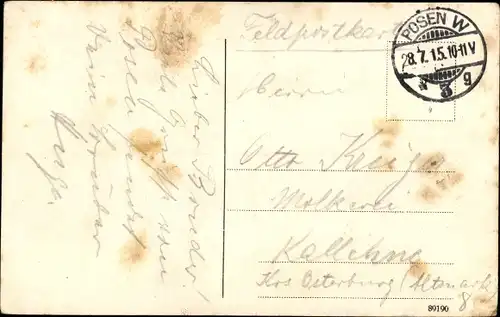 Feldpostkarte
POSEN W
28.7.15.10-11V
3 g
Herrn
Otto
Molkerei
Kallehne
Krs Osterburg (Altmark)
Lieber Bruder!
von
Posen sendet
Bruder
89190